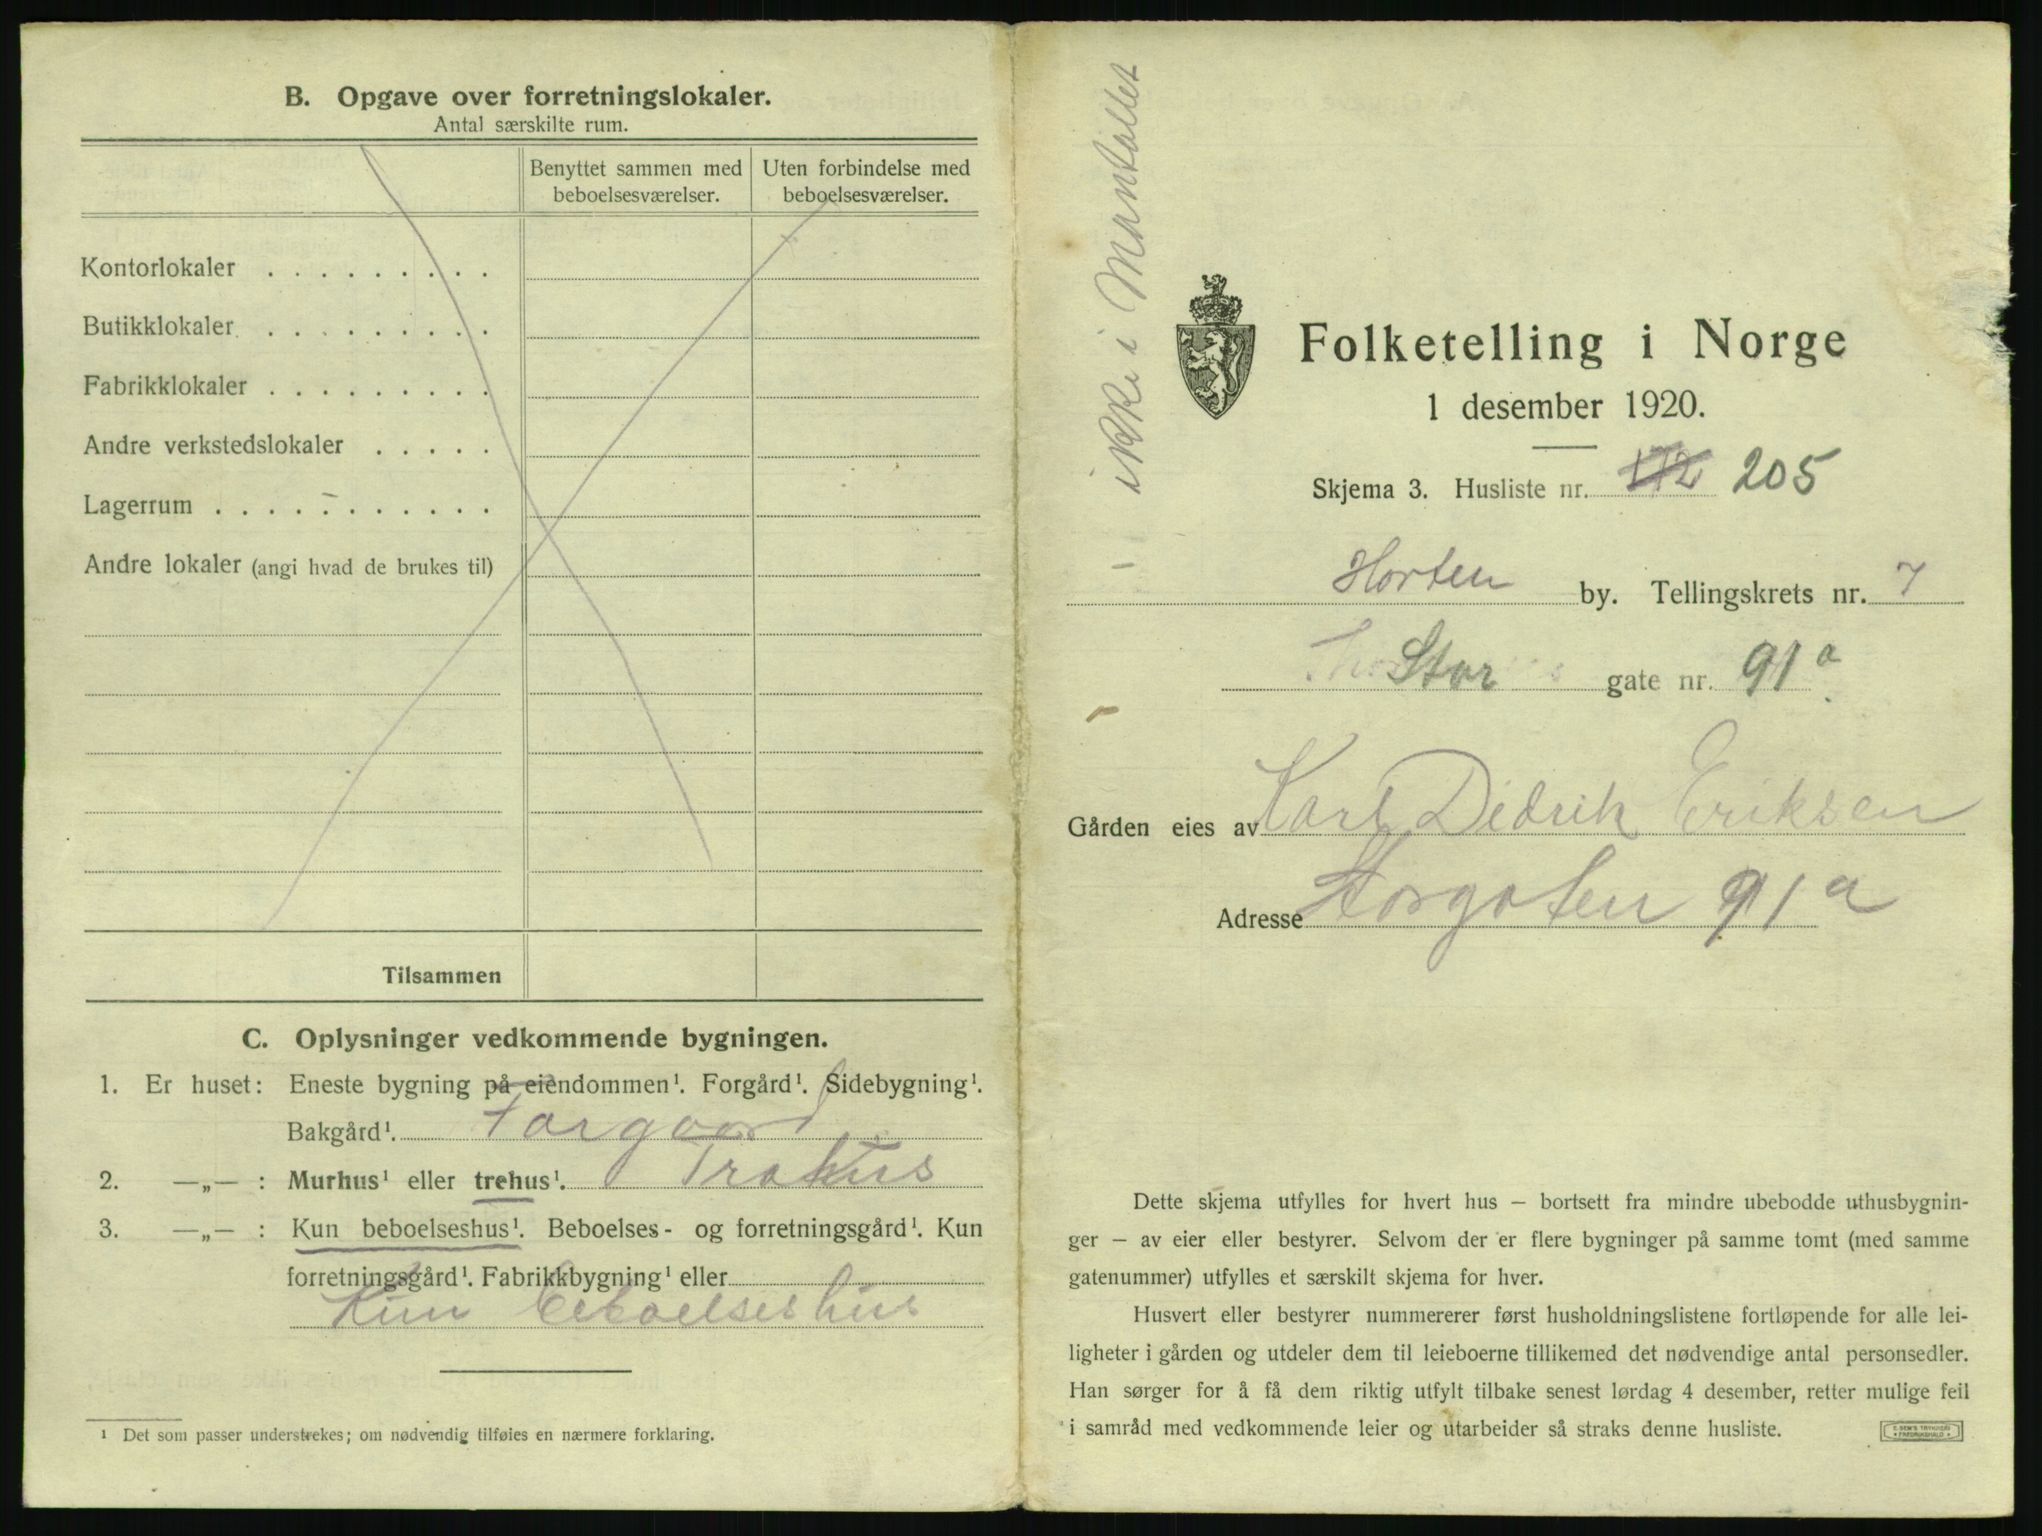 B. Opgave over forretningslokaler.
Antal særskilte rum.
Benyttet sammen med beboelsesværelser.
Uten forbindelse med beboelsesværelser.
Kontorlokaler . . . . . . . . .
Butikklokaler . . . . . . . . .
Fabrikklokaler . . . . . . . . .
Andre verkstedslokaler . . . . .
Lagerrum . . . . . . . . . . .
Andre lokaler (angi hvad de brukes til)
Tilsammen
C. Oplysninger vedkommende bygningen.
1. Er huset: Eneste bygning på eiendommen¹. Forgård¹. Sidebygning¹.
Bakgård¹. Forgaard
2. —„— : Murhus¹ eller trehus¹. Trahus
3. —„— : Kun beboelseshus¹. Beboelses- og forretningsgård¹. Kun
forretningsgård¹. Fabrikkbygning¹ eller
Kun beboelseshus
¹ Det som passer understrekes; om nødvendig tilføies en nærmere forklaring.
ikke i Mantallet
Folketelling i Norge
1 desember 1920.
Skjema 3. Husliste nr. 172 205
Horten by. Tellingskrets nr. 7
Stor gate nr. 91a
Gården eies av Karl Didrik Eriksen
Adresse Storgaten 91a
Dette skjema utfylles for hvert hus – bortsett fra mindre ubebodde uthusbygnin-
ger – av eier eller bestyrer. Selvom der er flere bygninger på samme tomt (med samme
gatenummer) utfylles et særskilt skjema for hver.
Husvert eller bestyrer nummererer først husholdningslistene fortløpende for alle lei-
ligheter i gården og utdeler dem til leieboerne tillikemed det nødvendige antal personsedler.
Han sørger for å få dem riktig utfylt tilbake senest lørdag 4 desember, retter mulige feil
i samråd med vedkommende leier og utarbeider så straks denne husliste.